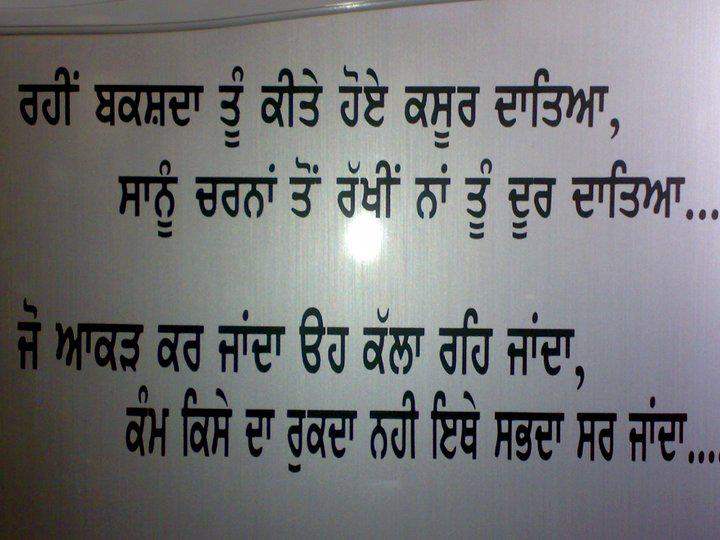 ਰਹੀਂ ਬਕਸ਼ਦਾ ਤੂੰ ਕੀਤੇ ਹੋਏ ਕਸੂਰ ਦਾਤਿਆ,
ਸਾਨੂੰ ਚਰਨਾਂ ਤੋਂ ਰੱਖੀਂ ਨਾਂ ਤੂੰ ਦੂਰ ਦਾਤਿਆ...
ਜੋ ਆਕੜ ਕਰ ਜਾਂਦਾ ਉਹ ਕੱਲਾ ਰਹਿ ਜਾਂਦਾ,
ਕੰਮ ਕਿਸੇ ਦਾ ਰੁਕਦਾ ਨਹੀ ਇਥੇ ਸਭਦਾ ਸਰ ਜਾਂਦਾ....